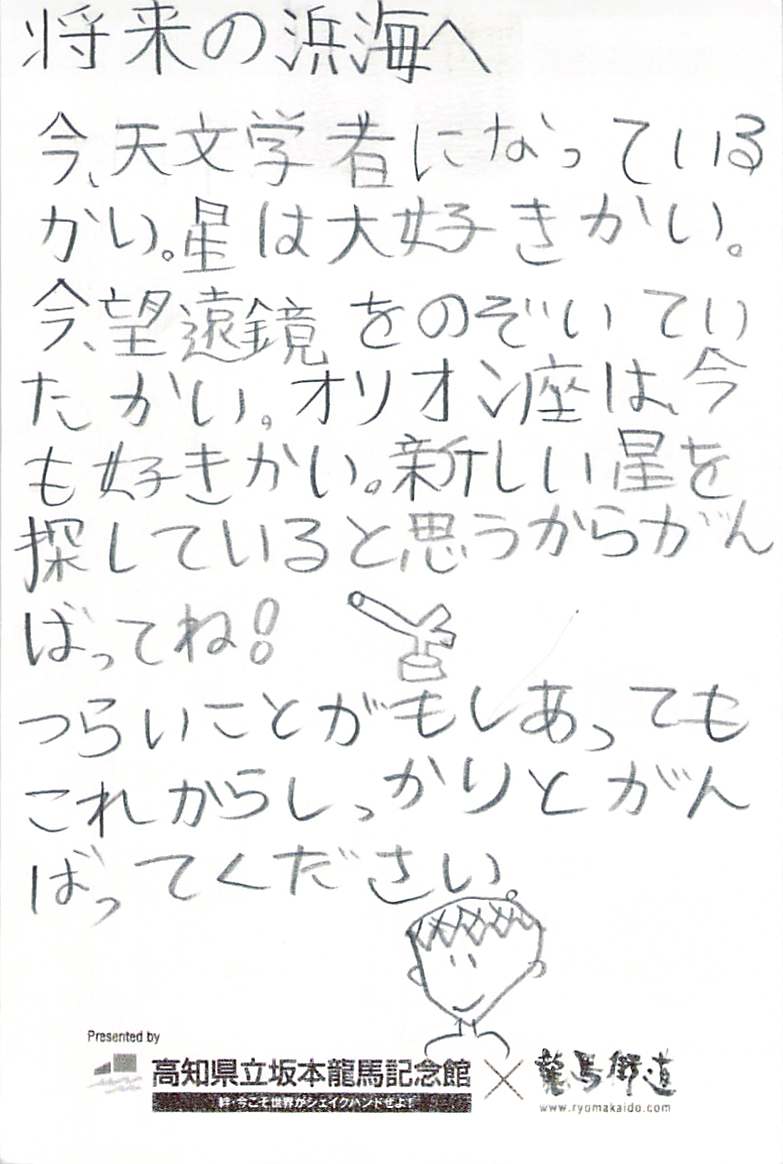 将来の浜海へ
今、天文学者になっている
かい。星は大好きかい。
今、望遠鏡をのぞいてい
たかい。オリオン座は、今
も好きかい。新しい星を
探していると思うからがん
ばってね!!
つらいことがもしあっても
これからしっかりとがん
ばってください。
Presented by
高知県立坂本龍馬記念館×龍馬街道
絆・今こそ世界がシェイクハンドぜよ!
www.ryomakaido.com